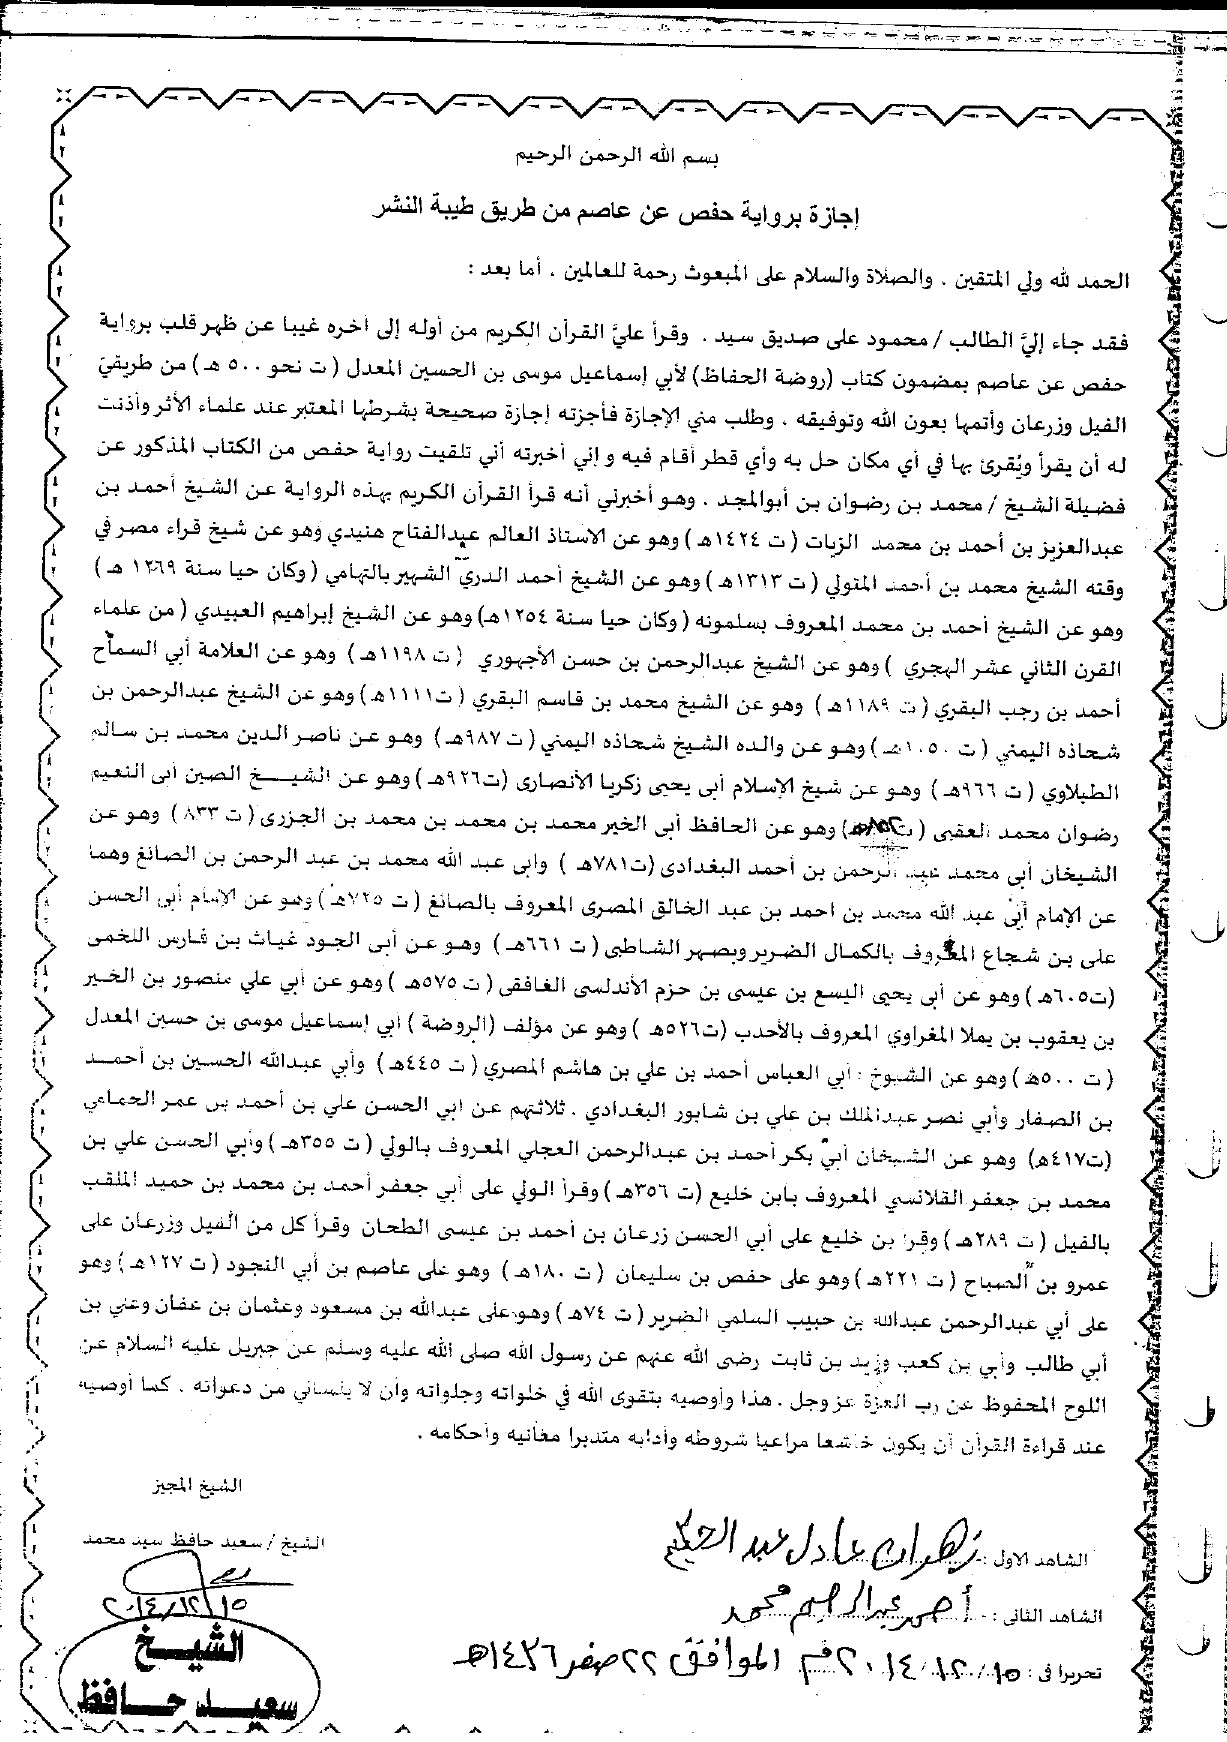 بسم الله الرحمن الرحيم
إجازة برواية حفص عن عاصم من طريق طيبة النشر
الحمد لله ولي المتقين . والصلاة والسلام على المبعوث رحمة للعالمين . أما بعد :
فقد جاء إليَّ الطالب / محمود على صديق سيد . وقرأ عليَّ القرآن الكريم من أوله إلى أخره غيبا عن ظهر قلب برواية
حفص عن عاصم بمضمون كتاب (روضة الحفاظ) لأبي إسماعيل موسى بن الحسين المعدل (ت نحو ٥٠٠ هـ) من طريقيَ
الفيل وزرعان وأتمها بعون الله وتوفيقه . وطلب مني الإجازة فأجزته إجازة صحيحة بشرطها المعتبر عند علماء الأثر وأذنت
له أن يقرأ ويُقرئ بها في أي مكان حل به وأي قطر أقام فيه و إني أخبرته أني تلقيت رواية حفص من الكتاب المذكور عن
فضيلة الشيخ / محمد بن رضوان بن أبوالمجد . وهو أخبرني أنه قرأ القرآن الكريم بهذه الرواية عن الشيخ أحمد بن
عبدالعزيز بن أحمد بن محمد الزيات (ت ١٤٢٤هـ) وهو عن الاستاذ العالم عبدالفتاح هنيدي وهو عن شيخ قراء مصر في
وقته الشيخ محمد بن أحمد المتولي (ت ١٣١٣هـ) وهو عن الشيخ أحمد الدريّ الشهير بالتهامي (وكان حيا سنة ١٢٦٩ هـ)
وهو عن الشيخ أحمد بن محمد المعروف بسلمونه (وكان حيا سنة ١٢٥٤هـ) وهو عن الشيخ إبراهيم العبيدي (من علماء
القرن الثاني عشر الهجري ) وهو عن الشيخ عبدالرحمن بن حسن الأجهوري (ت ١١٩٨هـ) وهو عن العلامة أبي السماح
أحمد بن رجب البقري (ت ١١٨٩هـ) وهو عن الشيخ محمد بن قاسم البقري (ت١١١١هـ) وهو عن الشيخ عبدالرحمن بن
شحاذه اليمني (ت ١٠٥٠هـ) وهو عن والده الشيخ شحاذه اليمني (ت ٩٨٧هـ) وهو عن ناصر الدين محمد بن سالم
الطبلاوي (ت ٩٦٦هـ) وهو عن شيخ الإسلام أبى يحيى زكريا الأنصارى (ت٩٢٦هـ) وهو عن الشيــخ الصين أبى النعيم
رضوان محمد العقبى (ت٨٥٢هـ) وهو عن الحافظ أبى الخير محمد بن محمد بن محمد بن الجزرى (ت ٨٣٣) وهو عن
الشيخان أبي محمد عبد الرحمن بن أحمد البغدادى (ت٧٨١هـ ) وابى عبد الله محمد بن عبد الرحمن بن الصائغ وهما
عن الإمام أبى عبد الله محمد بن احمد بن عبد الخالق المصرى المعروف بالصائغ (ت ٧٢٥هـ) وهو عن الإمام أبى الحسن
على بن شجاع المعروف بالكمال الضرير وبصهر الشاطبى (ت ٦٦١هـ) وهو عن أبى الجود غياث بن فارس اللخمى
(ت٦٠٥هـ) وهو عن أبى يحيى اليسع بن عيسى بن حزم الأندلسى الغافقى (ت ٥٧٥هـ ) وهو عن أبي علي منصور بن الخير
بن يعقوب بن يملا المغراوي المعروف بالأحدب (ت٥٢٦هـ ) وهو عن مؤلف (الروضة) أبي إسماعيل موسى بن حسين المعدل
(ت ٥٠٠هـ) وهو عن الشيوخ : أبي العباس أحمد بن علي بن هاشم المصري (ت ٤٤٥هـ) وأبي عبدالله الحسين بن أحمـد
بن الصفار وأبي نصر عبدالملك بن علي بن شابور البغدادي . ثلاثتهم عن ابي الحسن علي بن أحمد بن عمر الحمامي
(ت٤١٧هـ) وهو عن الشيخان أبي بكر أحمد بن عبدالرحمن العجلي المعروف بالولي (ت ٣٥٥هـ) وأبي الحسن علي بن
محمد بن جعفر القلانسي المعروف بابن خليع (ت ٣٥٦هـ) وقرأ الولي على أبي جعفر أحمد بن محمد بن حميد الملقب
بالفيل (ت ٢٨٩هـ) وقرأ بن خليع على أبي الحسن زرعان بن أحمد بن عيسى الطحان وقرأ كل من الفيل وزرعان على
عمرو بن الصباح (ت ٢٢١هـ) وهو على حفص بن سليمان (ت ١٨٠هـ) وهو على عاصم بن أبي النجود (ت ١٢٧هـ) وهو
على أبي عبدالرحمن عبدالله بن حبيب السلمي الضرير (ت ٧٤هـ) وهو على عبدالله بن مسعود وعثمان بن عفان وعلي بن
أبي طالب وأبي بن كعب وزيد بن ثابت رضى الله عنهم عن رسول الله صلى الله عليه وسلم عن جبريل عليه السلام عن
اللوح المحفوظ عن رب العزة عز وجل . هذا وأوصيه بتقوى الله في خلواته وجلواته وأن لا ينساني من دعواته . كما أوصيه
عند قراءة القرآن أن يكون خاشعا مراعيا شروطه وأدابه متدبرا معانيه وأحكامه .
الشيخ المجيز
الشيخ / سعيد حافظ سيد محمد
الشاهد الاول : زهران عادل عبد الحكيم
الشاهد الثانى : أحمد عبد الرحيم محمد
٢٠١٤/١٢/١٥
تحريرا فى : ٢٠١٤/١٢/١٥م الموافق ٢٢ صفر ١٤٣٦هـ
الشيــخ
سعيــد حــافظ